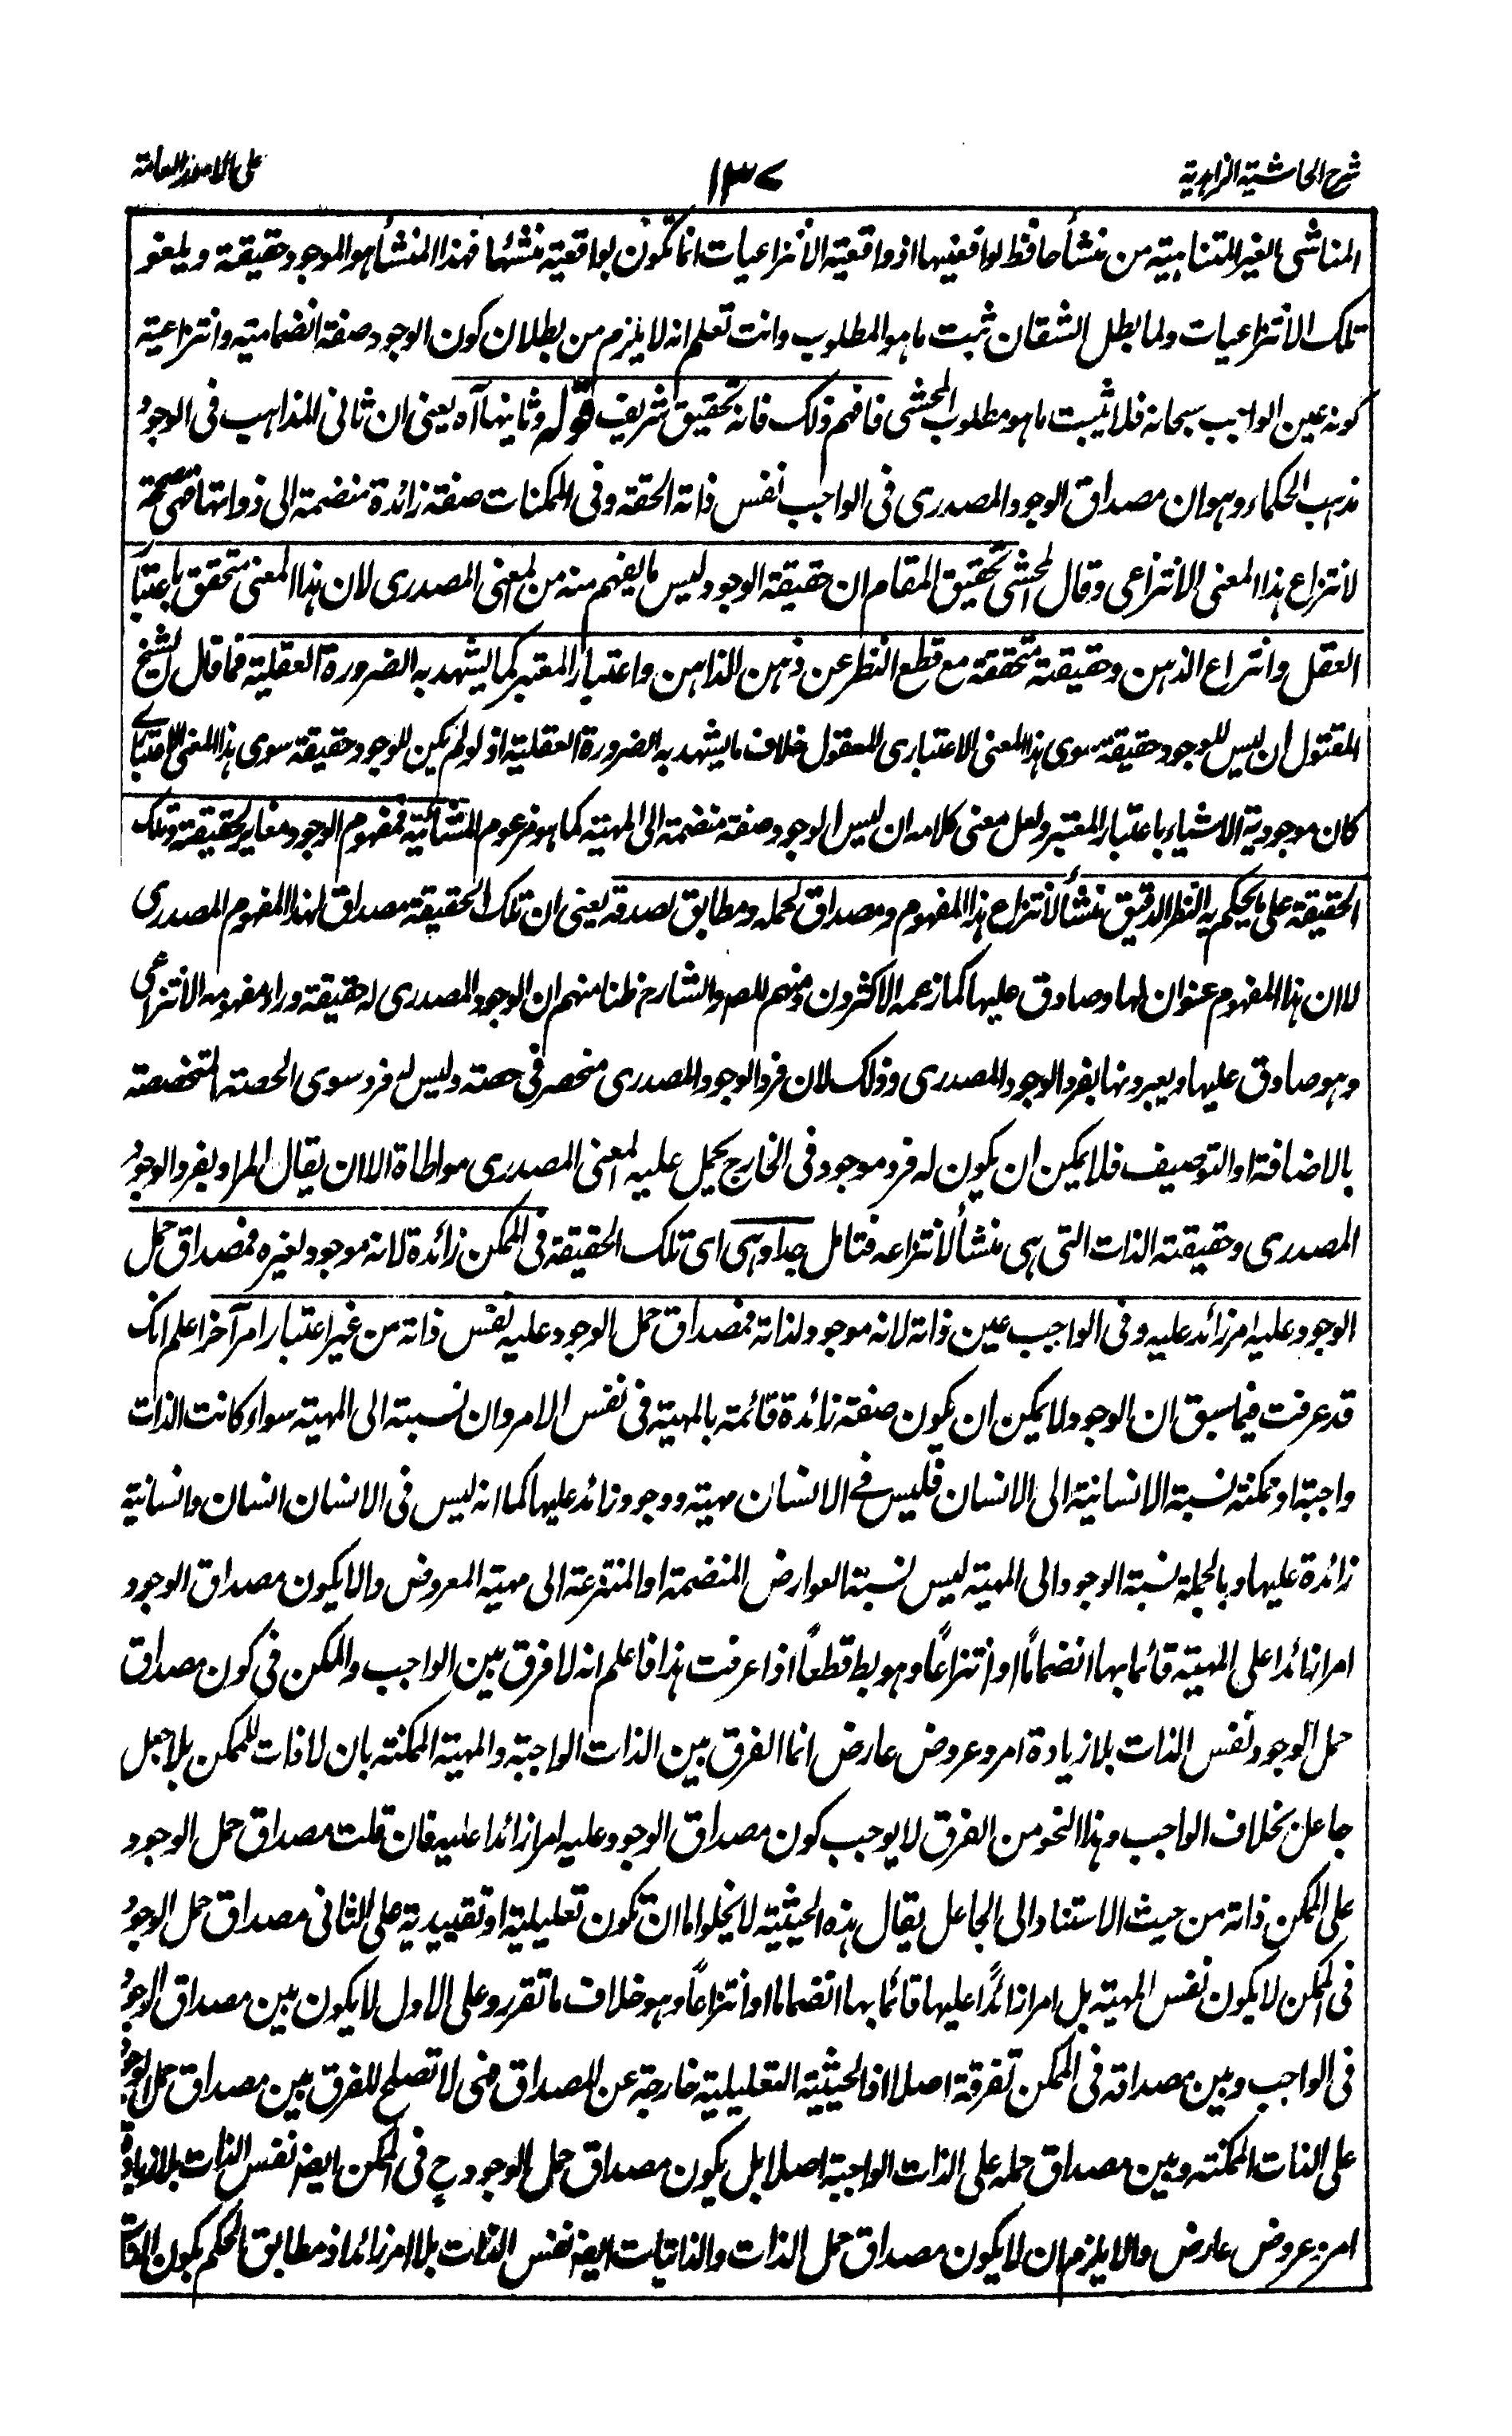 شرح الحاشية الزاهدية
١٣٧
على الامور العامة
المناشى الغير المتناهية من منشأ حافظ لواقعيتها اذ واقعية الانتزاعيات انما تكون بواقعية منشئها فهذا المنشأ هو الموجود حقيقة ويلغو
تلك الانتزاعيات ولما بطل الشقان ثبت ما هو المطلوب وانت تعلم انه لا يلزم من بطلان كون الوجود صفة انضمامية وانتزاعية
كونه عين الواجب سبحانه فلا يثبت ما هو مطلوب المحشى فافهم ذلك فانه تحقيق شريف قوله وثانيها آه يعنى ان ثانى المذاهب فى الوجود
مذهب الحكماء وهو ان مصداق الوجود المصدرى فى الواجب نفس ذاته الحقة وفى الممكنات صفة زائدة منضمة الى ذواتها مصححة
لانتزاع هذا المعنى الانتزاعى وقال المحشى تحقيق المقام ان حقيقة الوجود ليس ما يفهم منه من المعنى المصدرى لان هذا المعنى متحقق باعتبار
العقل وانتزاع الذهن وحقيقته متحققة مع قطع النظر عن ذهن الذاهن واعتبار المعتبر كما يشهد به الضرورة العقلية فما قال الشيخ
المقتول ان ليس للوجود حقيقة سوى هذا المعنى الاعتبارى المعقول خلاف ما يشهد به الضرورة العقلية اذ لو لم يكن للوجود حقيقة سوى هذا المعنى الاعتبارى
كان موجودية الاشياء باعتبار المعتبر ولعل معنى كلامه ان ليس الوجود صفة منضمة الى المهية كما هو مزعوم المشائية فمفهوم الوجود مغاير لحقيقته وتلك
الحقيقة على ما يحكم به النظر الدقيق منشأ لانتزاع هذا المفهوم ومصداق لحمله ومطابق لصدقه يعنى ان تلك الحقيقة مصداق لهذا المفهوم المصدرى
لا ان هذا المفهوم عنوان لها وصادق عليها كما زعمه الاكثرون ومنهم المصـ والشارح ظنا منهم ان الوجود المصدرى له حقيقة وراء مفهومه الانتزاعى
وهو صادق عليها ويعبرونها بفرد الوجود المصدرى وذلك لان فرد الوجود المصدرى منحصر فى حصته وليس له فرد سوى الحصته المتخصصة
بالاضافة او التوصيف فلا يمكن ان يكون له فرد موجود فى الخارج يحمل عليه المعنى المصدرى مواطاة الا ان يقال المراد بفرد الوجود
المصدرى وحقيقته الذات التى هى منشأ لانتزاعه فتامل جدا وهى اى تلك الحقيقة فى الممكن زائدة لانه موجود لغيره فمصداق حمل
الوجود عليه امر زائد عليه وفى الواجب عين ذاته لانه موجود لذاته فمصداق حمل الوجود عليه نفس ذاته من غير اعتبار امر آخر اعلم انك
قد عرفت فيما سبق ان الوجود لا يمكن ان يكون صفة زائدة قائمة بالمهية فى نفس الامر وان نسبته الى المهية سواء كانت الذات
واجبة او ممكنة نسبة الانسانية الى الانسان فليس فى الانسان مهية ووجود زائد عليها كما انه ليس فى الانسان انسان وانسانية
زائدة عليها وبالجملة نسبة الوجود الى المهية ليس نسبة العوارض المنضمة او المنتزعة الى مهية المعروض والا يكون مصداق الوجود
امرا زائدا على المهية قائما بها انضماماً او انتزاعاً وهو بط قطعاً اذا عرفت هذا فاعلم انه لا فرق بين الواجب والممكن فى كون مصداق
حمل الوجود نفس الذات بلا زيادة امر وعروض عارض انما الفرق بين الذات الواجبة والمهية الممكنة بان لا ذات للممكن بلا جعل
جاعل بخلاف الواجب وهذا النحو من الفرق لا يوجب كون مصداق الوجود عليه امرا زائدا عليه فان قلت مصداق حمل الوجود
على الممكن ذاته من حيث الاستناد الى الجاعل يقال هذه الحيثية لا يخلو اما ان تكون تعليلية او تقييدية على الثانى مصداق حمل الوجود
فى الممكن لا يكون نفس المهية بل امرا زائداً عليها قائما بها انضماما او انتزاعاً وهو خلاف ما تقرر وعلى الاول لا يكون بين مصداق الوجود
فى الواجب وبين مصداقه فى الممكن تفرقة اصلا اذ الحيثية التعليلية خارجة عن المصداق فهى لا تصلح للفرق بين مصداق حمل الوجود
على الذات الممكنة وبين مصداق حمله على الذات الواجبة اصلا بل يكون مصداق حمل الوجود ح فى الممكن ايضـ نفس الذات بلا زيادة
امر وعروض عارض والا يلزم ان لا يكون مصداق حمل الذات والذاتيات ايضـ نفس الذات بلا امر زائد اذ مطابق الحكم بكون الذات